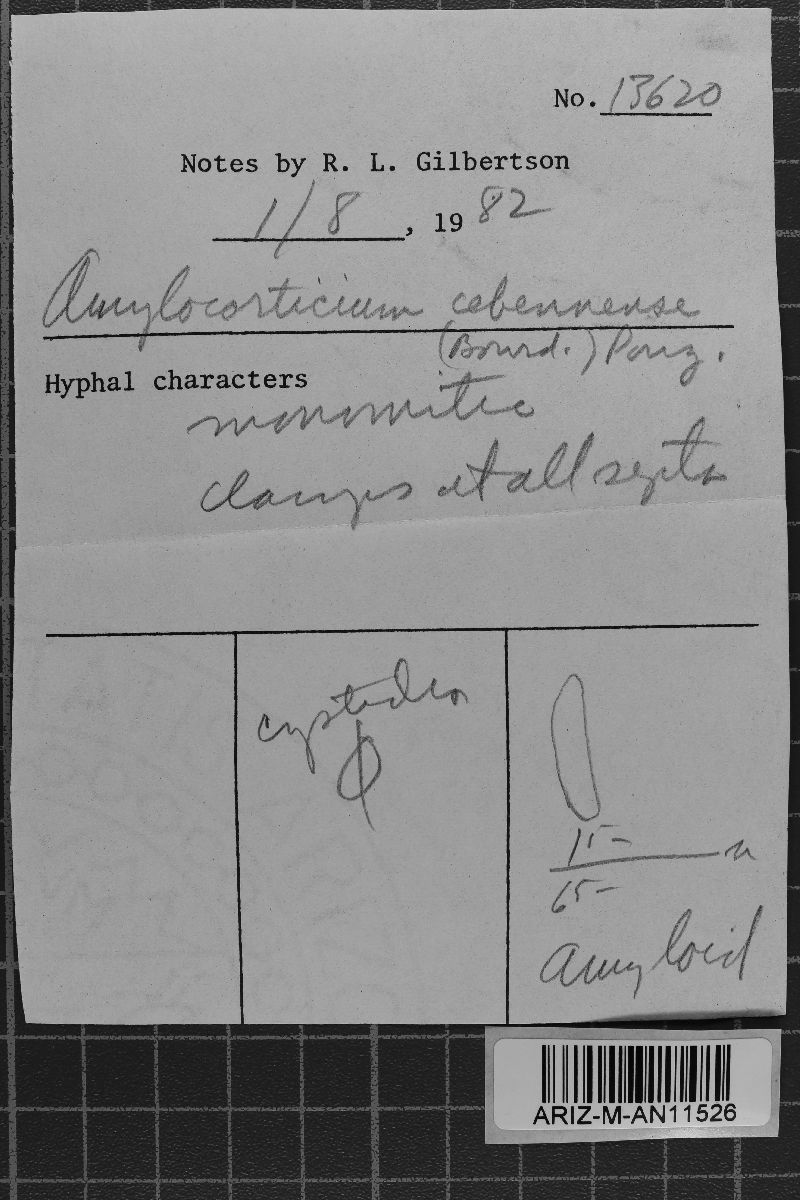 No. 13620
Notes by R. L. Gilbertson
1/8, 1982
Amylocorticium cebennense
(Bourd.) Pouz.
Hyphal characters
monomitic
clamps at all septa
cystidia
φ
15-
65-
amyloid
ARIZ-M-AN11526